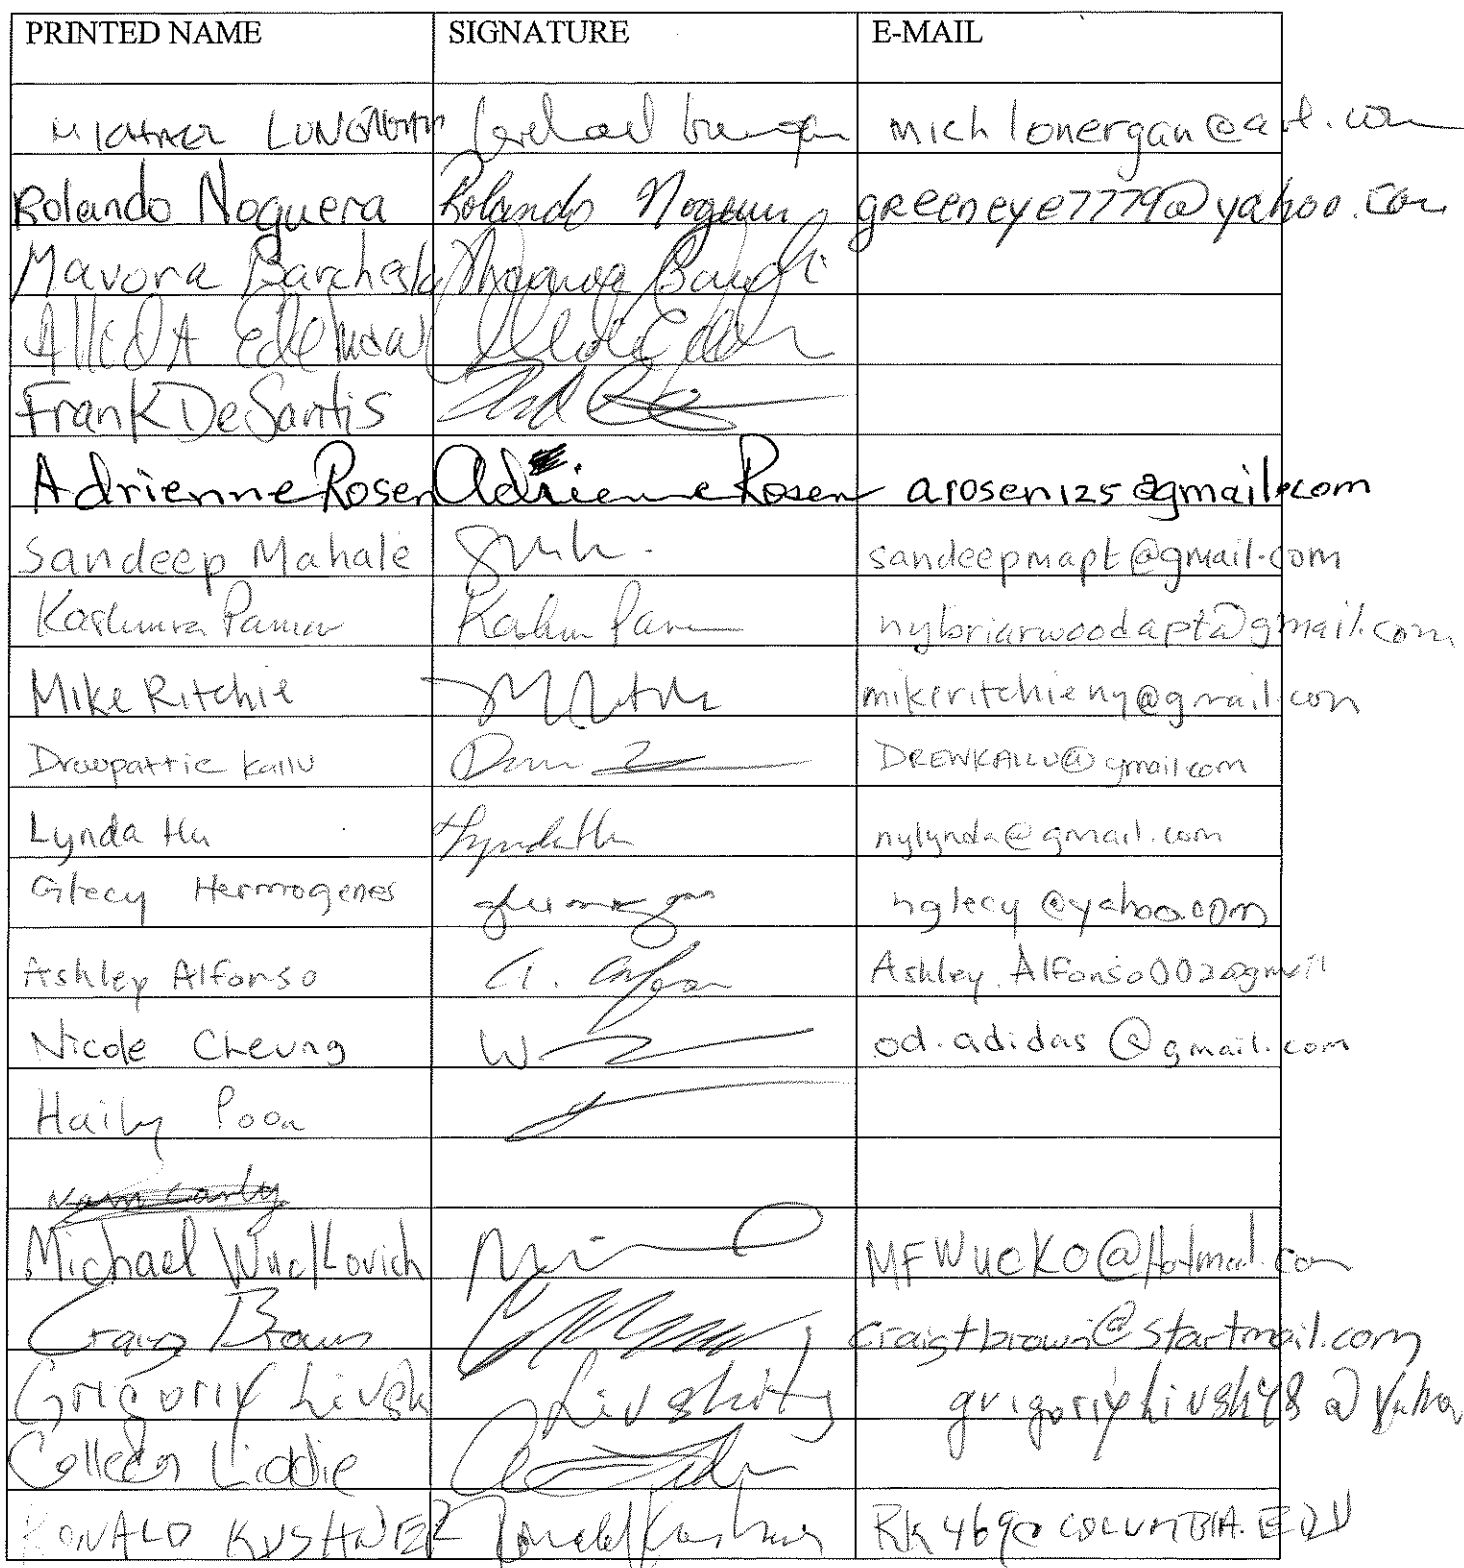 PRINTED NAME SIGNATURE E-MAIL
michlonergan@aol.com
Rolando Noguera Rolando Noguera greeneye7779@yahoo.com
Mavora
Frank DeSantis
Adrienne Rosen Adrienne Rosen arosen125@gmail.com
Sandeep Mahale sandeepmapt@gmail.com
nybriarwoodapt@gmail.com
Mike Ritchie mikeritchieny@gmail.com
Droupattie Kallu DREWKALLU@gmail.com
Lynda Hu Lynda Hu nylynda@gmail.com
Glecy Hermogenes nglecy@yahoo.com
Ashley Alfonso A. Alfonso Ashley.Alfonso002@gmail
Nicole Cheung od.adidas@gmail.com
Haily Poon
Michael MFWUCKO@Hotmail.com
Craig Brown craigtbrown@startmail.com
Grigoriy Livsh Livshits grigoriylivsh48@yahoo
Colleen Liddie
RONALD KUSHNER Ronald Kushner RK469@COLUMBIA.EDU